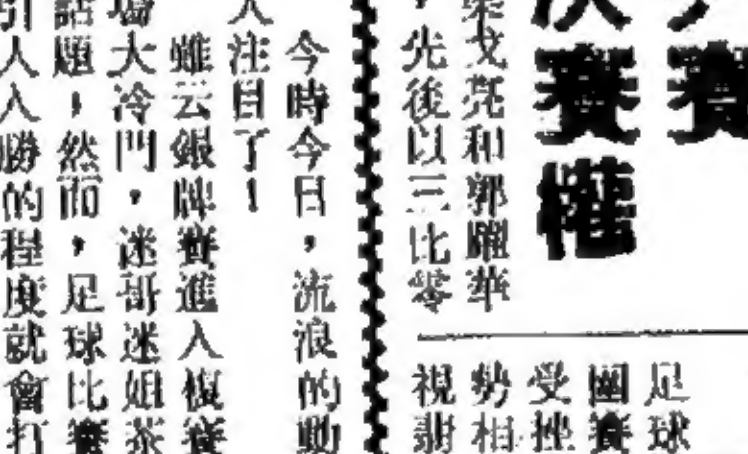 賽
決賽權
梁戈亮和郭躍華
，先後以三比零
足球
圍賽
受挫
勢相
視
今時今日，流浪的動
人注目了！
雖云銀牌賽進入復賽
場大冷門，迷哥迷姐茶
話題，然而，足球比賽
引人入勝的程度就會打